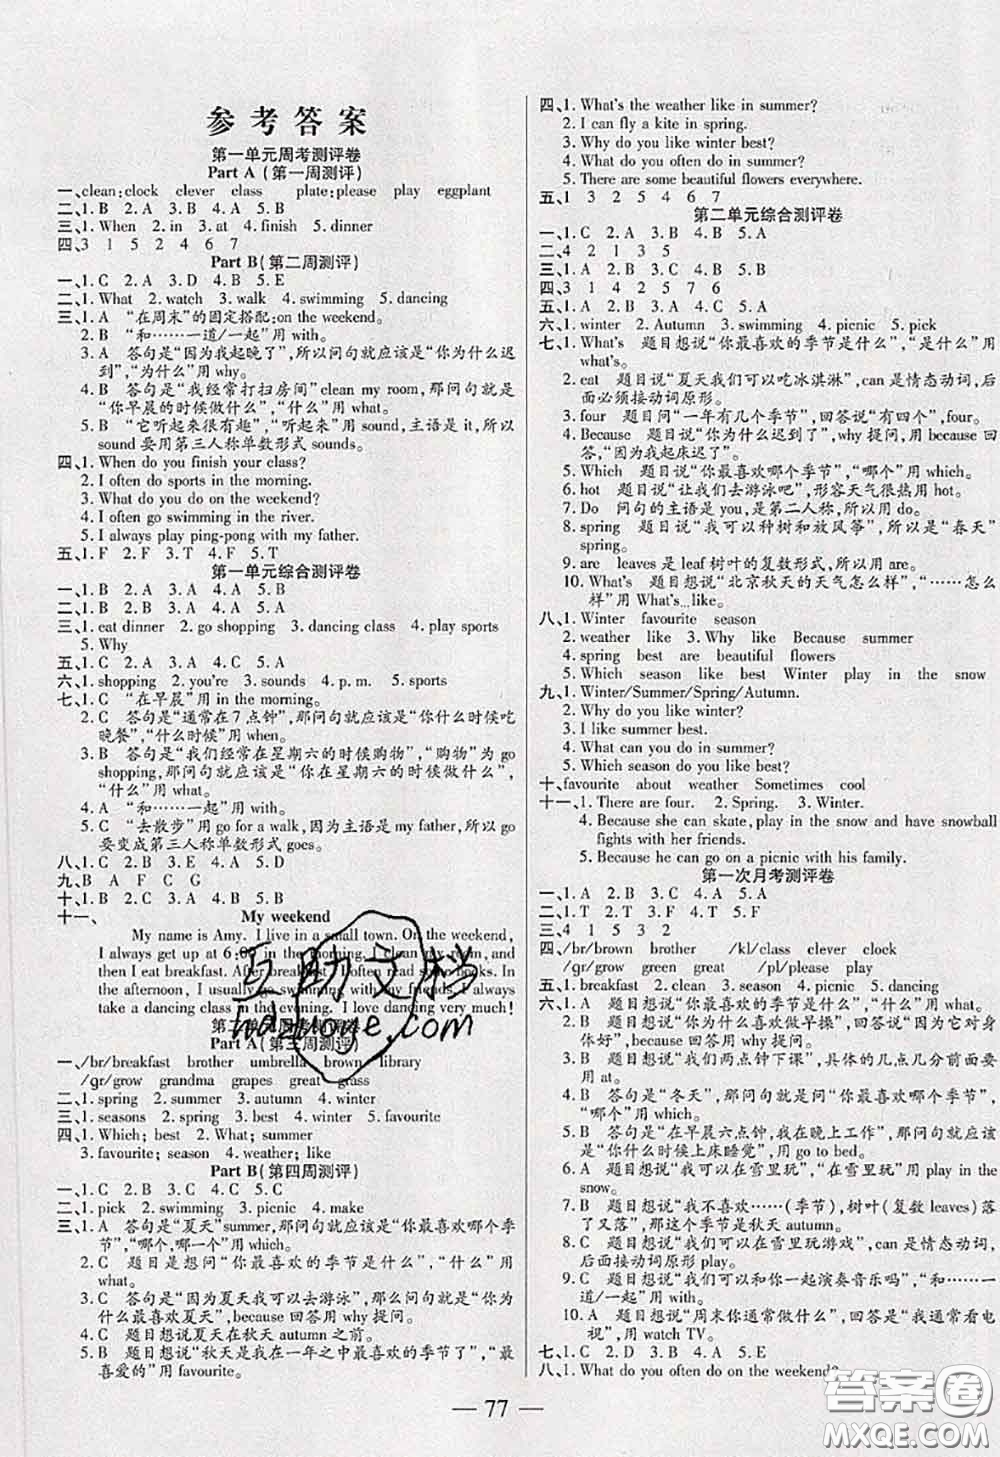 参考答案
第一单元周考测评卷
Part A (第一周测评)
一、clean:clock clever class plate:please play eggplant
二、1. B 2. A 3. B 4. A 5. B
三、1. When 2. in 3. at 4. finish 5. dinner
四、3 1 5 2 4 6 7
Part B (第二周测评)
一、1. C 2. A 3. D 4. B 5. E
二、1. What 2. watch 3. walk 4. swimming 5. dancing
三、1. A “在周末”的固定搭配:on the weekend。
2. B “和……一道/一起”用 with。
3. A 答句是“因为我起晚了”,所以问句就应该是“你为什么迟
到”,“为什么”用 why。
4. B 答句是“我经常打扫房间”clean my room,那问句就是
“你早晨的时候做什么”,“什么”用 what。
5. B “它听起来很有趣”,“听起来”用 sound,主语是 it,所以
sound 要用第三人称单数形式 sounds。
四、1. When do you finish your class?
2. I often do sports in the morning.
3. What do you do on the weekend?
4. I often go swimming in the river.
5. I always play ping-pong with my father.
五、1. F 2. F 3. T 4. F 5. T
第一单元综合测评卷
一、1. B 2. C 3. A 4. A 5. B
二、1. A 2. B 3. A 4. B 5. A
三、1. eat dinner 2. go shopping 3. dancing class 4. play sports
5. Why
五、1. C 2. A 3. A 4. C 5. A
六、1. shopping 2. you're 3. sounds 4. p. m. 5. sports
七、1. C “在早晨”用 in the morning。
2. C 答句是“通常在 7 点钟”,那问句就应该是“你什么时候吃
晚餐”,“什么时候”用 when。
3. B 答句是“我们经常在星期六的时候购物”,“购物”为 go
shopping,那问句就应该是“你在星期六的时候做什么”,
“什么”用 what。
4. A “和……一起”用 with。
5. C “去散步”用 go for a walk,因为主语是 my father,所以 go
要变成第三人称单数形式 goes。
八、1. C 2. B 3. E 4. A 5. D
九、B A F C G
十、1. B 2. C 3. A 4. B 5. C
十一、 My weekend
My name is Amy. I live in a small town. On the weekend,
I always get up at 6:00 in the morning. I clean my room, and
then I eat breakfast. After breakfast, I often read some books. In
the afternoon, I usually go swimming with my friends. I always
take a dancing class in the evening. I love dancing very much!
第二单元周考测评卷
Part A (第三周测评)
一、/br/breakfast brother umbrella brown library
/gr/grow grandma grapes great grass
二、1. spring 2. summer 3. autumn 4. winter
三、1. seasons 2. spring 3. best 4. winter 5. favourite
四、1. Which; best 2. What; summer
3. favourite; season 4. weather; like
Part B (第四周测评)
一、1. C 2. B 3. C 4. B 5. C
二、1. pick 2. swimming 3. picnic 4. make
三、1. A 答句是“夏天”summer,那问句就应该是“你最喜欢哪个季
节”,“哪个,哪一个”用 which。
2. C 题目是想问“你最喜欢的季节是什么”,“什么”用
what。
3. C 答句是“因为夏天我可以去游泳”,那么问句就是“你为
什么最喜欢夏天”,because 回答用 why 提问。
4. C 题目想说夏天在秋天 autumn 之前。
5. B 题目想说“秋天是我在一年之中最喜欢的季节了”,“最
喜爱的”用 favourite。
四、1. What's the weather like in summer?
2. I can fly a kite in spring.
3. Why do you like summer?
4. What do you often do in summer?
5. There are some beautiful flowers everywhere.
五、1 3 2 5 4 6 7
第二单元综合测评卷
一、1. C 2. A 3. C 4. B 5. A
二、4 2 1 3 5
三、1. B 2. A 3. C 4. B 5. B
四、3 1 4 2 5 7 6
五、1. A 2. B 3. C 4. C 5. A
六、1. winter 2. Autumn 3. swimming 4. picnic 5. pick
七、1. What's 题目想说“你最喜欢的季节是什么”,“是什么”用
what's。
2. eat 题目说“夏天我们可以吃冰淇淋”,can 是情态动词,后
面必须接动词原形。
3. four 题目问“一年有几个季节”,回答说“有四个”,four。
4. Because 题目想说“你为什么迟到了”,why 提问,because 回
答,“因为我起床迟了”。
5. Which 题目想说“你最喜欢哪个季节”,“哪个”用 which。
6. hot 题目想说“让我们去游泳吧”,形容天气很热用 hot。
7. Do 问句的主语是 you,是第二人称,所以用 do。
8. spring 题目想说“我可以种树和放风筝”,所以应是“春天”
spring。
9. are leaves 是 leaf 树叶的复数形式,所以用 are。
10. What's 题目想说“北京秋天的天气怎么样”,“……怎么
样”用 What's...like。
八、1. Winter favourite season
2. weather like 3. Why like Because summer
4. spring best are beautiful flowers
5. Which season like best Winter play in the snow
九、1. Winter/Summer/Spring/Autumn.
2. Why do you like winter?
3. I like summer best.
4. What can you do in summer?
5. Which season do you like best?
十、favourite about weather Sometimes cool
十一、1. There are four. 2. Spring. 3. Winter.
4. Because she can skate, play in the snow and have snowball
fights with her friends.
5. Because he can go on a picnic with his family.
第一次月考测评卷
一、1. A 2. B 3. C 4. C 5. A
二、1. T 2. T 3. F 4. T 5. F
三、4 1 5 3 2
四、/br/brown brother /kl/class clever clock
/gr/grow green great /pl/please play
五、1. breakfast 2. clean 3. season 4. picnic 5. dancing
六、1. A 题目想说“你最喜欢的季节是什么”,“什么”用 what。
2. B 题目想说“你为什么喜欢做早操”,回答说“因为它对身
体好”,because 回答用 why 提问。
3. B 题目想说“我们两点钟下课”,具体的几点几分前面要
用 at。
4. B 答句是“冬天”,那问句应该是“你最喜欢哪个季节”,
“哪个”用 which。
5. B 答句是“在早晨六点钟,我在晚上工作”,那问句应该是
“你什么时候上床睡觉”,用 go to bed。
6. A 题目想说“在雪里玩”,“在雪里玩”用 play in the
snow。
7. B 题目想说“我不喜欢……(季节),树叶(复数 leaves)落
了又落”,那就应该是秋天 autumn。
8. C 题目想说“我能在雪里玩游戏”,can 是情态动词,后面
接动词原形 play。
9. C 题目想说“我们可以和你一起演奏音乐吗”,“和……
一道/一起”用 with。
10. A 题目想说“周末你通常做什么”,回答是“我通常看电
视”,用 watch TV。
七、1. C 2. D 3. B 4. E 5. A
八、1. What do you often do on the weekend?
— 77 —
互助文档
huzhuwoye.com
答案圈
MXQE.COM